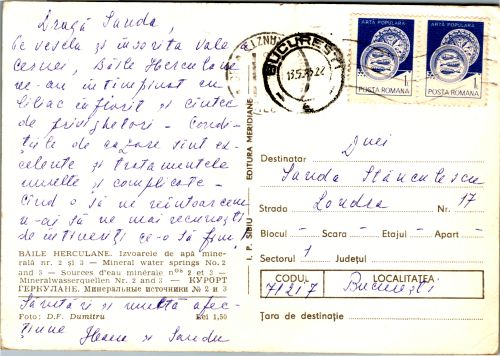 Dragă Sanda,
Pe vesela și însorita vale a
Cernei, Băile Herculane
ne-au întîmpinat cu
liliac înflorit și cîntec
de privighetori - Condi-
țiile de cazare sînt ex-
celente și tratamentele
multe și complicate -
Cînd o să ne reîntoarcem
n-ai să ne mai recunoști
de întineriți ce-o să fim!
BĂILE HERCULANE. Izvoarele de apă mine-
rală nr. 2 și 3 — Mineral water springs No. 2
and 3 — Sources d'eau minérale nos 2 et 3 —
Mineralwasserquellen Nr. 2 und 3 — КУРОРТ
ГЕРКУЛАНЕ. Минеральные источники № 2 и 3
Sărutări și multă afec-
țiune Ileana și Sandu
Foto: D.F. Dumitru Lei 1,50
EDITURA MERIDIANE
I. P. SIBIU
BUCUREȘTI
ARTĂ POPULARĂ
1
POȘTA ROMÂNĂ
ARTĂ POPULARĂ
1
POȘTA ROMÂNĂ
Destinatar Dnei
Sanda Stănculescu
Strada Londra Nr. 17
Blocul - Scara - Etajul - Apart -
Sectorul 1 Județul
CODUL LOCALITATEA
71217 București
Țara de destinație